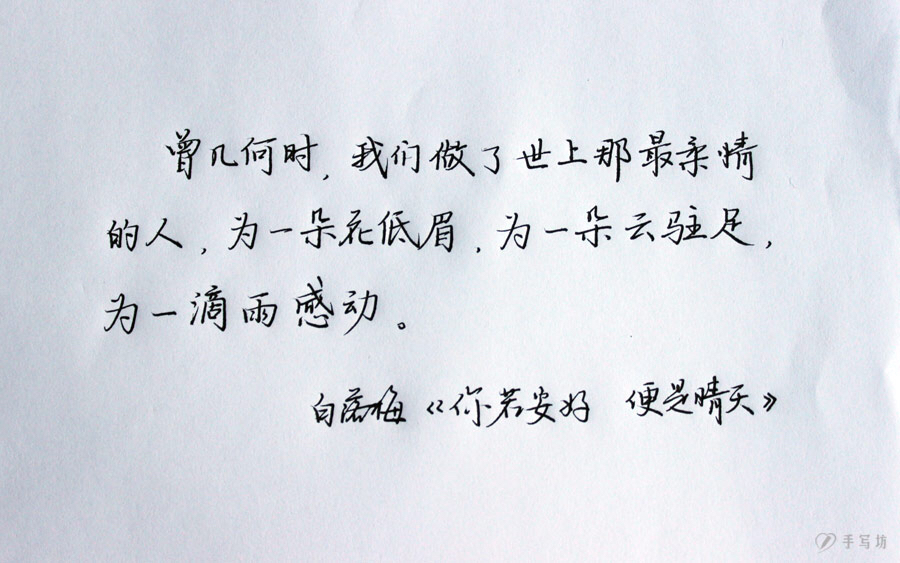 曾几何时，我们做了世上那最柔情
的人，为一朵花低眉，为一朵云驻足，
为一滴雨感动。
白落梅《你若安好 便是晴天》
手写坊